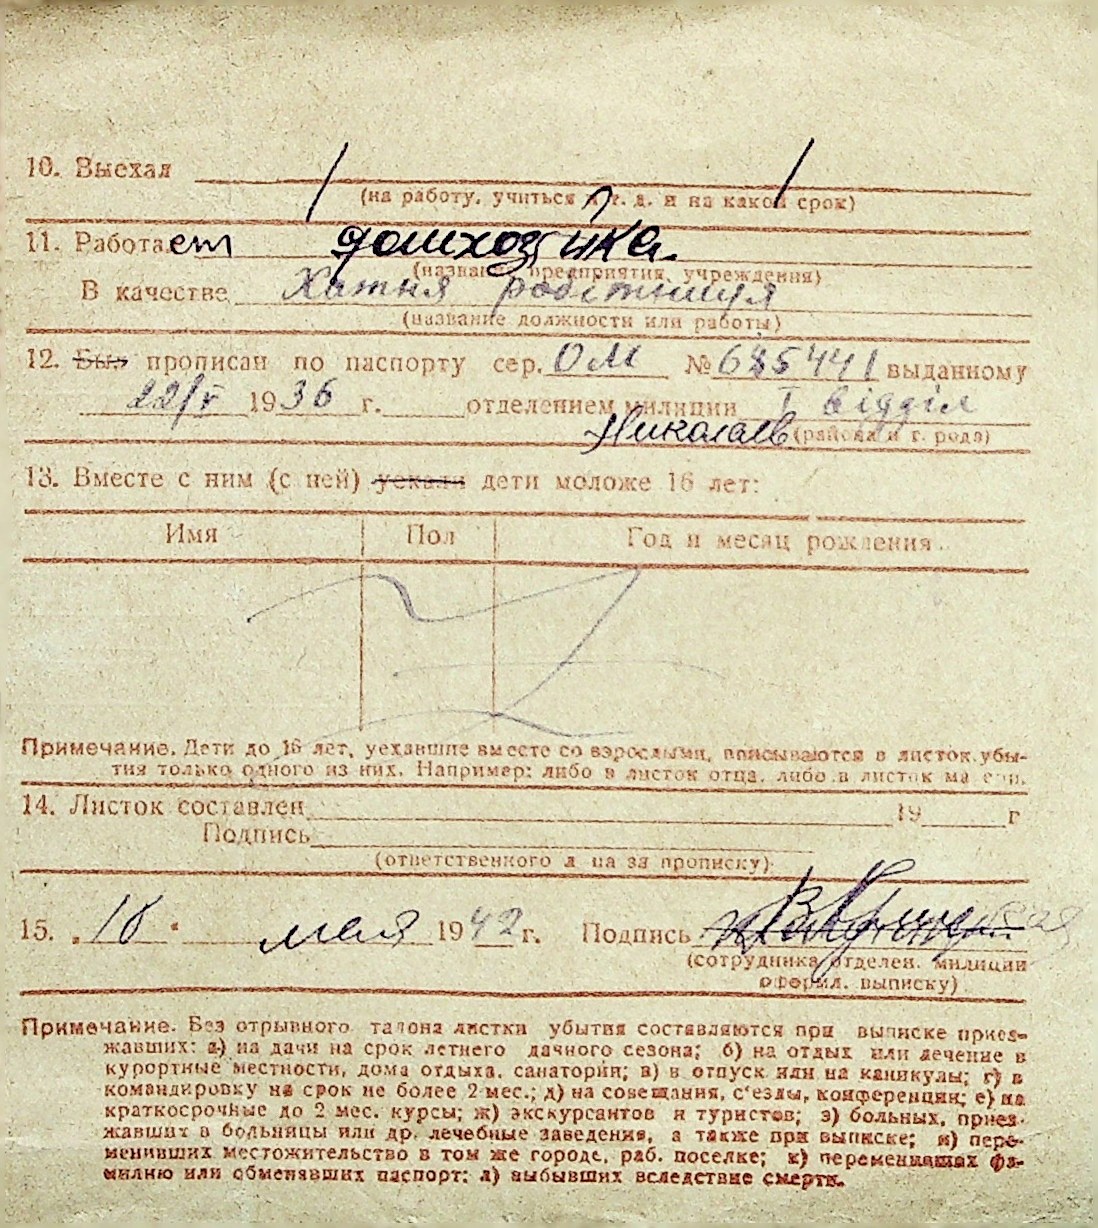 10. Выехал
(на работу, учиться и т. д. и на какой срок)
11. Работает домхозяйка.
(название предприятия, учреждения)
В качестве Хатня робітниця
(название должности или работы)
12. Был прописан по паспорту сер. ОМ № 635441 выданному
22/V 1936 г. отделением милиции I відділ
Николаев (района и города)
13. Вместе с ним (с ней) уехали дети моложе 16 лет:
Имя Пол Год и месяц рождения
Примечание. Дети до 16 лет, уехавшие вместе со взрослыми, вписываются в листок убы-
тия только одного из них. Например: либо в листок отца, либо в листок матери.
14. Листок составлен 19 г
Подпись
(ответственного лица за прописку)
15. „18" мая 1942 г. Подпись
(сотрудника отделен. милиции
оформл. выписку)
Примечание. Без отрывного талона листки убытия составляются при выписке приез-
жавших: а) на дачи на срок летнего дачного сезона; б) на отдых или лечение в
курортные местности, дома отдыха, санатории; в) в отпуск или на каникулы; г) в
командировку на срок не более 2 мес.; д) на совещания, с'езды, конференции; е) на
краткосрочные до 2 мес. курсы; ж) экскурсантов и туристов; з) больных, приез-
жавших в больницы или др. лечебные заведения, а также при выписке; и) пере-
менивших местожительство в том же городе, раб. поселке; к) переменивших фа-
милию или обменявших паспорт; л) выбывших вследствие смерти.